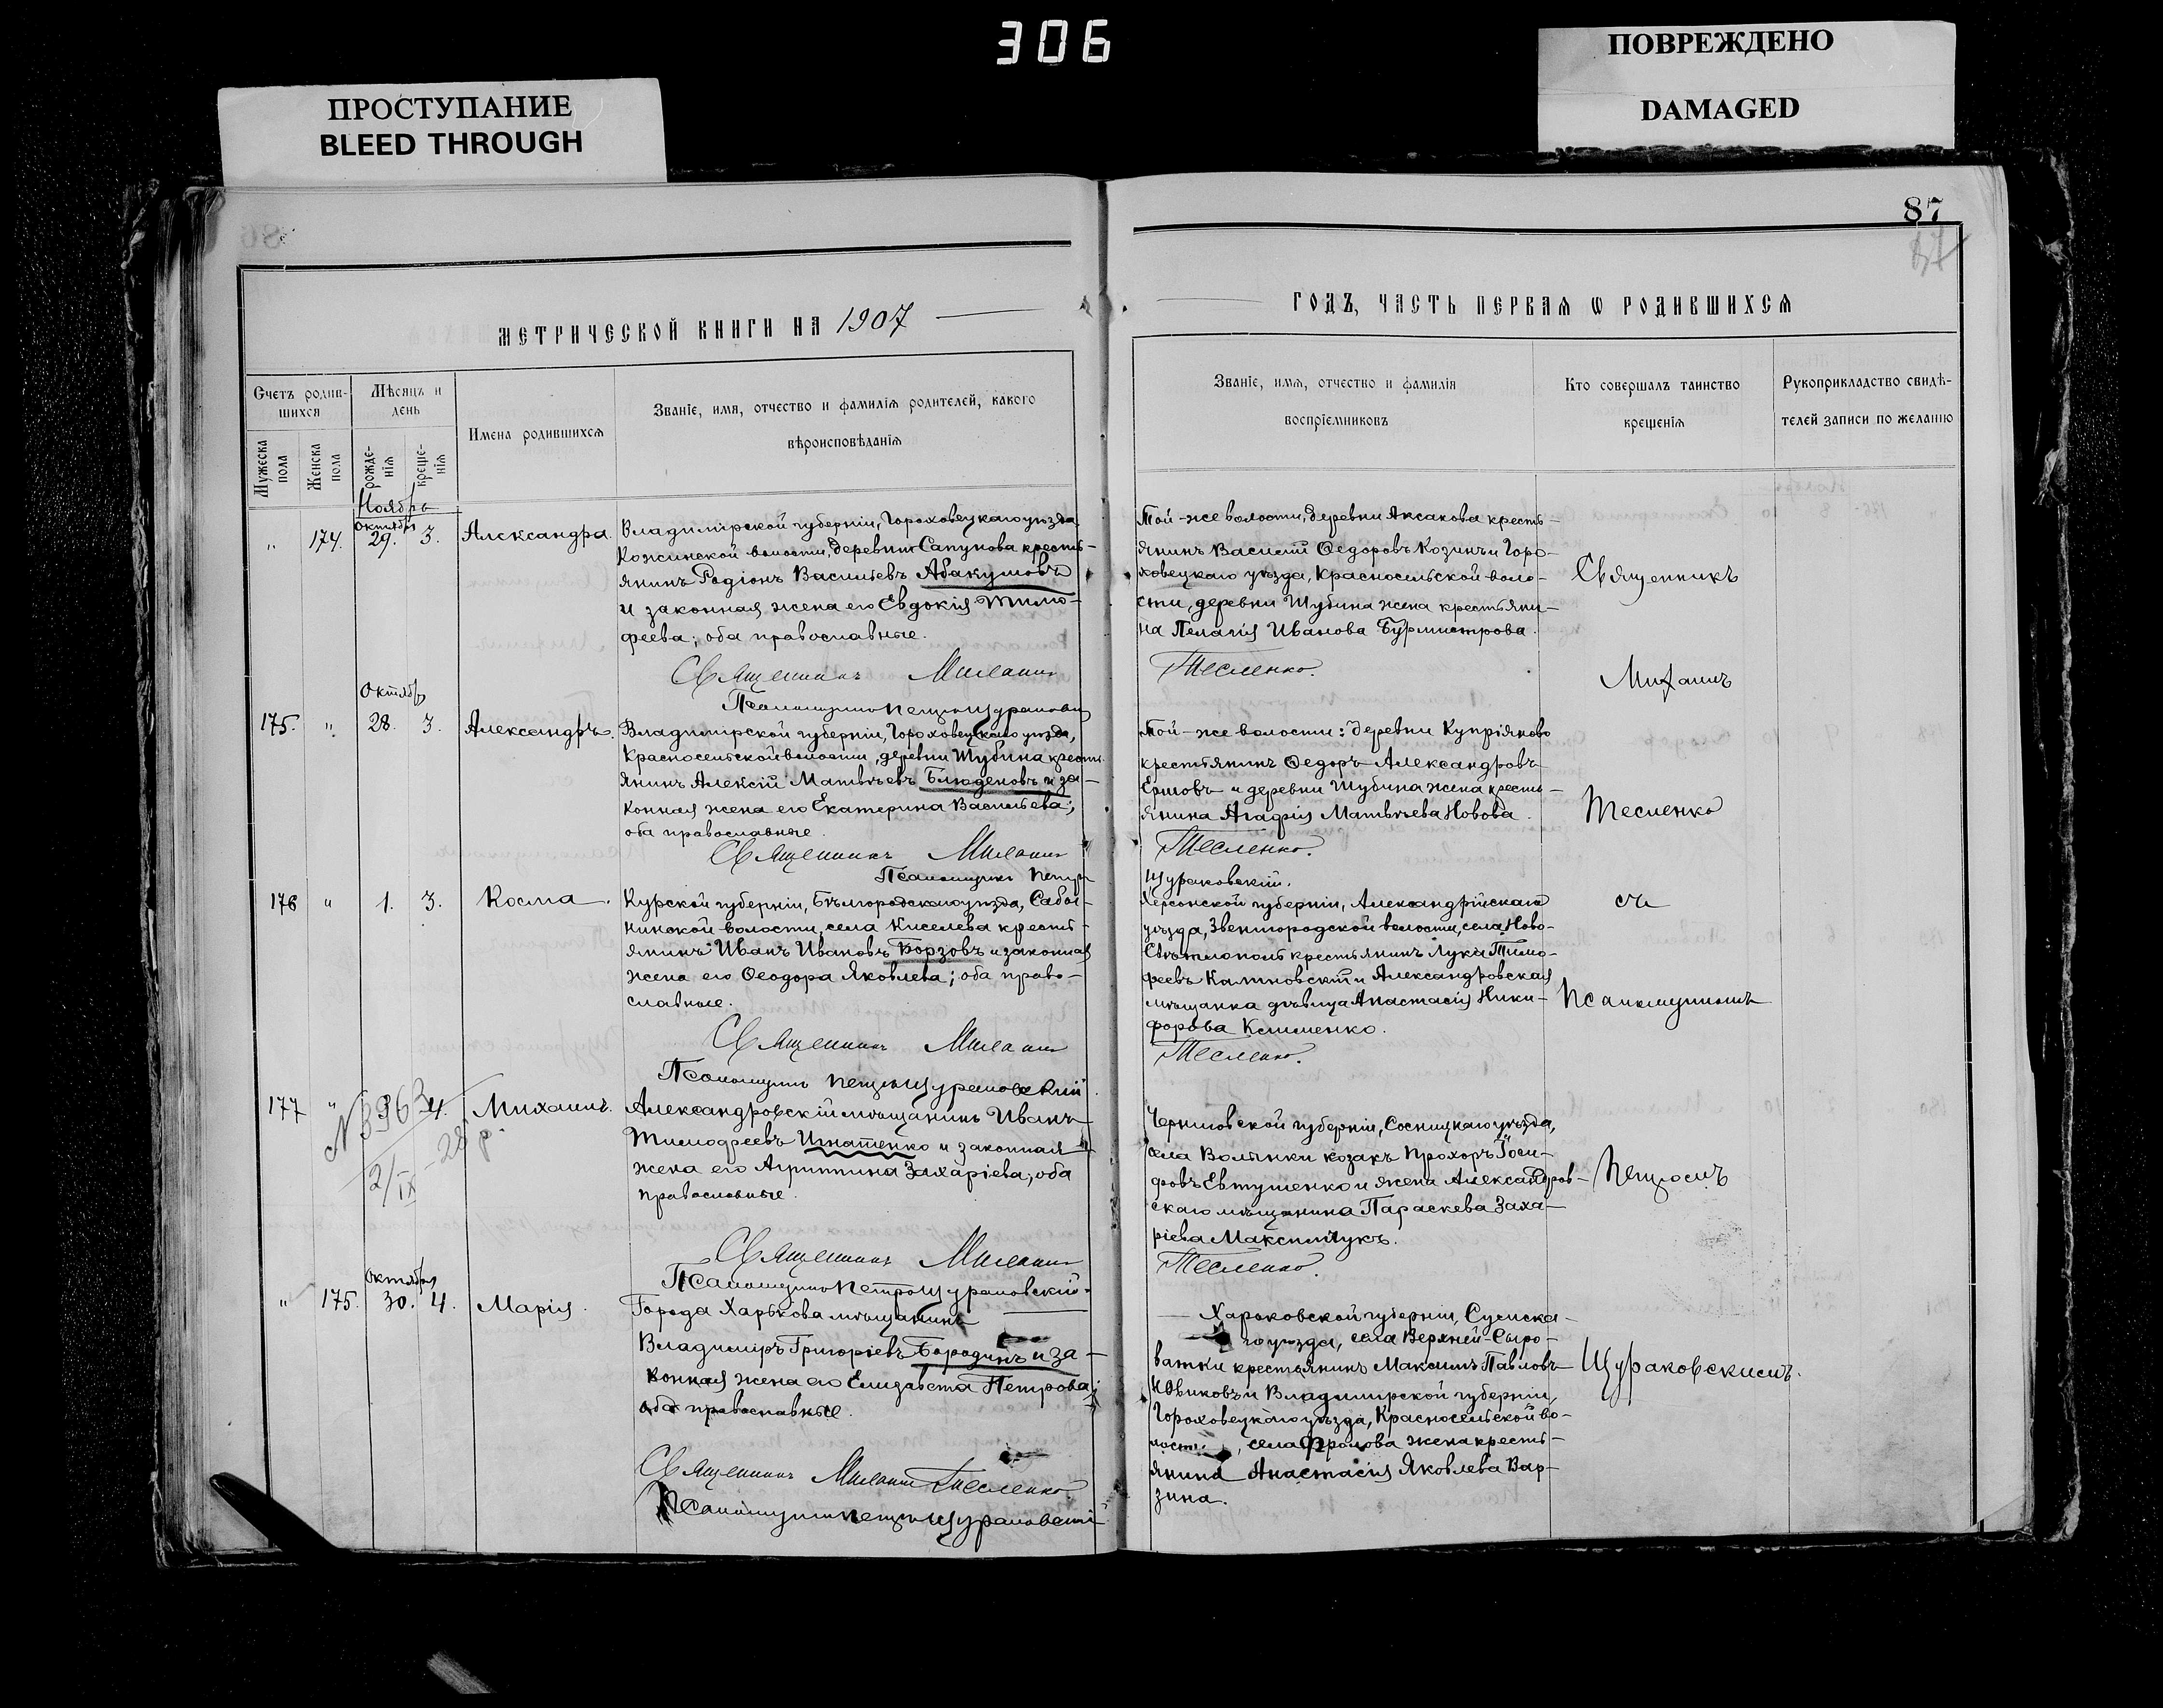 306
ПРОСТУПАНИЕ
BLEED THROUGH
ПОВРЕЖДЕНО
DAMAGED
87
МЕТРИЧЕСКОЙ КНИГИ НА 1907
ГОДЪ, ЧАСТЬ ПЕРВАЯ Ѡ РОДИВШИХСЯ
Счетъ родив-
шихся
Мѣсяцъ и
день
Мужеска
пола
Женска
пола
рожде-
нія
креще-
нія
Имена родившихся
Званіе, имя, отчество и фамилія родителей, какого
вѣроисповѣданія
Званіе, имя, отчество и фамилія
воспріемниковъ
Кто совершалъ таинство
крещенія
Рукоприкладство свидѣ-
телей записи по желанію
Ноябрь
Октября
" 174. 29. 3. Александра.
Владимірской губерніи, Гороховецкаго уѣзда
Кожинской волости, деревни Сапунова кресть-
янинъ Родіонъ Васильевъ Абакумовъ
и законная жена его Евдокія Тимо-
феева; оба православные.
Священникъ Михаилъ
Псаломщикъ Петръ Щураковскій
Той-же волости, деревни Аксакова кресть-
янинъ Василій Ѳедоровъ Козинъ и Горо-
ховецкаго уѣзда, Красносельской воло-
сти, деревни Шубина жена крестьяни-
на Пелагія Иванова Бурмистрова.
Тесленко.
Священникъ
Михаилъ
Октября
175. " 28. 3. Александръ.
Владимірской губерніи, Гороховецкаго уѣзда,
Красносельской волости, деревни Шубина кресть-
янинъ Алексій Матвѣевъ Блюденовъ и за-
конная жена его Екатерина Васильева;
оба православные.
Священникъ Михаилъ
Псаломщикъ Петръ
Той-же волости: деревни Купріяново
крестьянинъ Ѳедоръ Александровъ
Ершовъ и деревни Шубина жена кресть-
янина Агафія Матвѣева Новова.
Тесленко.
Щураковскій.
Тесленко
176 " 1. 3. Косма.
Курской губерніи, Бѣлгородскаго уѣзда, Сабы-
нинской волости, села Киселева кресть-
янинъ Иванъ Ивановъ Борзовъ и законная
жена его Ѳеодора Яковлева; оба право-
славные.
Священникъ Михаилъ
Псаломщикъ Петръ Щураковскій.
Херсонской губерніи, Александрійскаго
уѣзда, Звенигородской волости, села Ново-
Свѣтлополь крестьянинъ Лука Тимо-
феевъ Калиновскій и Александровская
мѣщанка дѣвица Анастасія Ники-
форова Клименко.
Тесленко.
съ
псаломщикомъ
177 " 4. Михаилъ.
№ 3963
2/IX - 28 р.
Александровскій мѣщанинъ Иванъ
Тимофеевъ Игнатенко и законная
жена его Агриппина Захаріева; оба
православные.
Священникъ Михаилъ
Псаломщикъ Петръ Щураковскій.
Черниговской губерніи, Сосницкаго уѣзда,
села Волынки козакъ Прохоръ Іоси-
фовъ Евтушенко и жена Александров-
скаго мѣщанина Параскева Заха-
ріева Максимчукъ.
Тесленко.
Петромъ
Октября
" 175. 30. 4. Марія.
Города Харькова мѣщанинъ
Владиміръ Григоріевъ Бородинъ и за-
конная жена его Елизавета Петрова;
оба православные.
Священникъ Михаилъ Тесленко.
Псаломщикъ Петръ Щураковскій
Харьковской губерніи, Сумска-
го уѣзда, села Верхней-Сыро-
ватки крестьянинъ Максимъ Павловъ
Новиковъ и Владимирской губерніи,
Гороховецкаго уѣзда, Красносельской во-
лости, села Фролова жена кресть-
янина Анастасія Яковлева Вар-
зина.
Щураковскимъ.